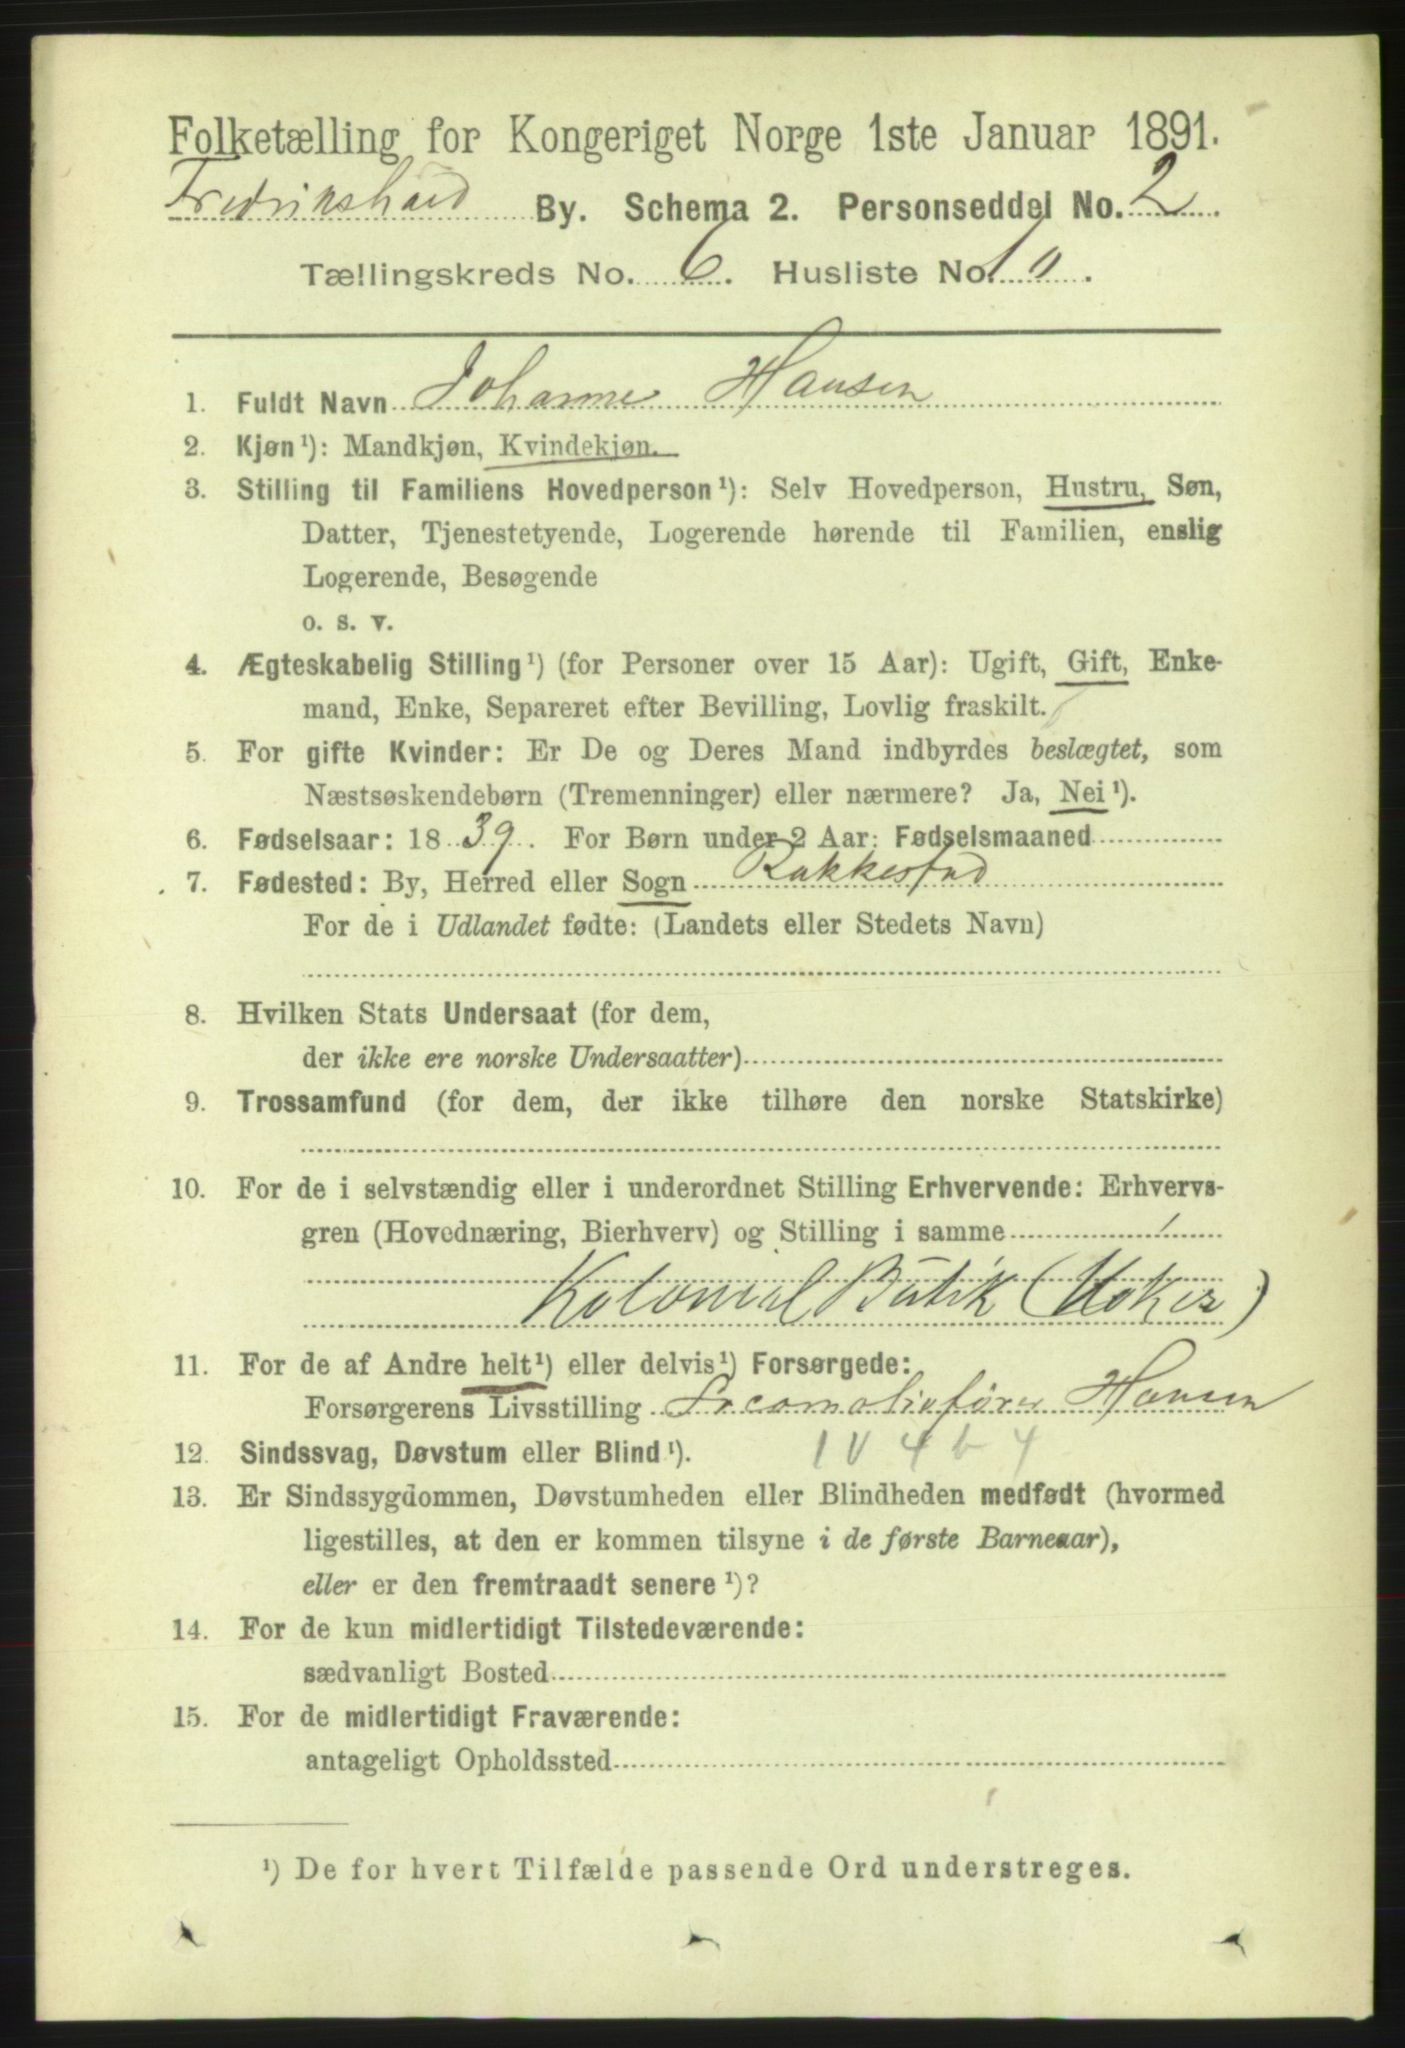 Folketælling for Kongeriget Norge 1ste Januar 1891.
Fredrikshald By. Schema 2. Personseddel No. 2.
Tællingskreds No. 6. Husliste No. 10.
1. Fuldt Navn Johanne Hansen
2. Kjøn¹): Mandkjøn, Kvindekjøn.
3. Stilling til Familiens Hovedperson¹): Selv Hovedperson, Hustru, Søn,
Datter, Tjenestetyende, Logerende hørende til Familien, enslig
Logerende, Besøgende
o. s. v.
4. Ægteskabelig Stilling¹) (for Personer over 15 Aar): Ugift, Gift, Enke-
mand, Enke, Separeret efter Bevilling, Lovlig fraskilt.
5. For gifte Kvinder: Er De og Deres Mand indbyrdes beslægtet, som
Næstsøskendebørn (Tremenninger) eller nærmere? Ja, Nei¹).
6. Fødselsaar: 1839. For Børn under 2 Aar: Fødselsmaaned
7. Fødested: By, Herred eller Sogn Rakkestad
For de i Udlandet fødte: (Landets eller Stedets Navn)
8. Hvilken Stats Undersaat (for dem,
der ikke ere norske Undersaatter)
9. Trossamfund (for dem, der ikke tilhøre den norske Statskirke)
10. For de i selvstændig eller i underordnet Stilling Erhvervende: Erhvervs-
gren (Hovednæring, Bierhverv) og Stilling i samme
Kolonial Butik (Høker)
11. For de af Andre helt¹) eller delvis¹) Forsørgede:
Forsørgerens Livsstilling Locomotivfører Hansen
12. Sindssvag, Døvstum eller Blind¹).
13. Er Sindssygdommen, Døvstumheden eller Blindheden medfødt (hvormed
ligestilles, at den er kommen tilsyne i de første Barneaar),
eller er den fremtraadt senere¹)?
14. For de kun midlertidigt Tilstedeværende:
sædvanligt Bosted
15. For de midlertidigt Fraværende:
antageligt Opholdssted
¹) De for hvert Tilfælde passende Ord understreges.